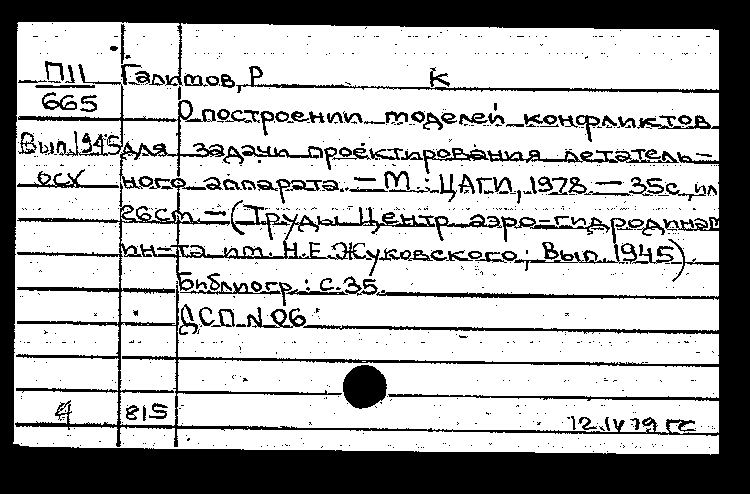 П11 Галитов, Р К
665 О построении моделей конфликтов
Вып.1945 для задачи проектирования летатель-
осх ного аппарата. — М.: ЦАГИ, 1978 — 35с., ил
26см. — (Труды Центр аэро-гидродинам
ин-та им. Н.Е.Жуковского; Вып. 1945).
Библиогр.: с.35.
ДСП N 06
4 815 12.IV 79